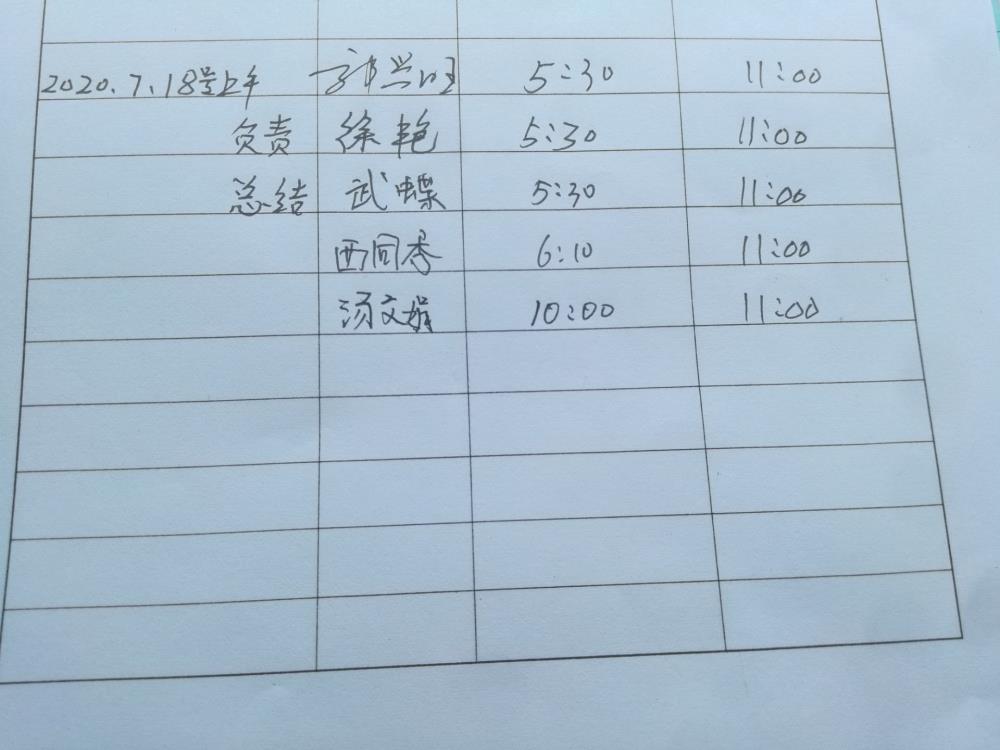 2020.7.18号上午 郭兴旺 5:30 11:00
负责 徐艳 5:30 11:00
总结 武蝶 5:30 11:00
西同秀 6:10 11:00
汤文娟 10:00 11:00